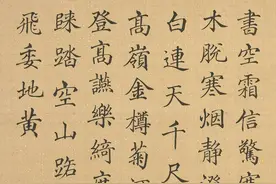 書空霜信驚
木脫寒烟靜澄
白連天千尺
髙嶺金樽菊
登髙讌樂綺
踏空山
飛委地黃